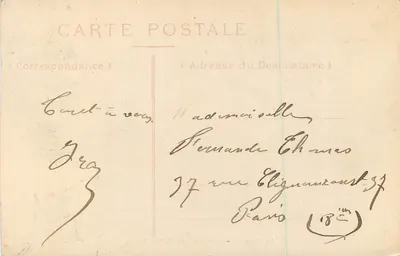 CARTE POSTALE
(Correspondance)
(Adresse du Destinataire)
à vous
Mademoiselle
Fernande Thomas
37 rue Clignancourt 37
Paris (18ème)